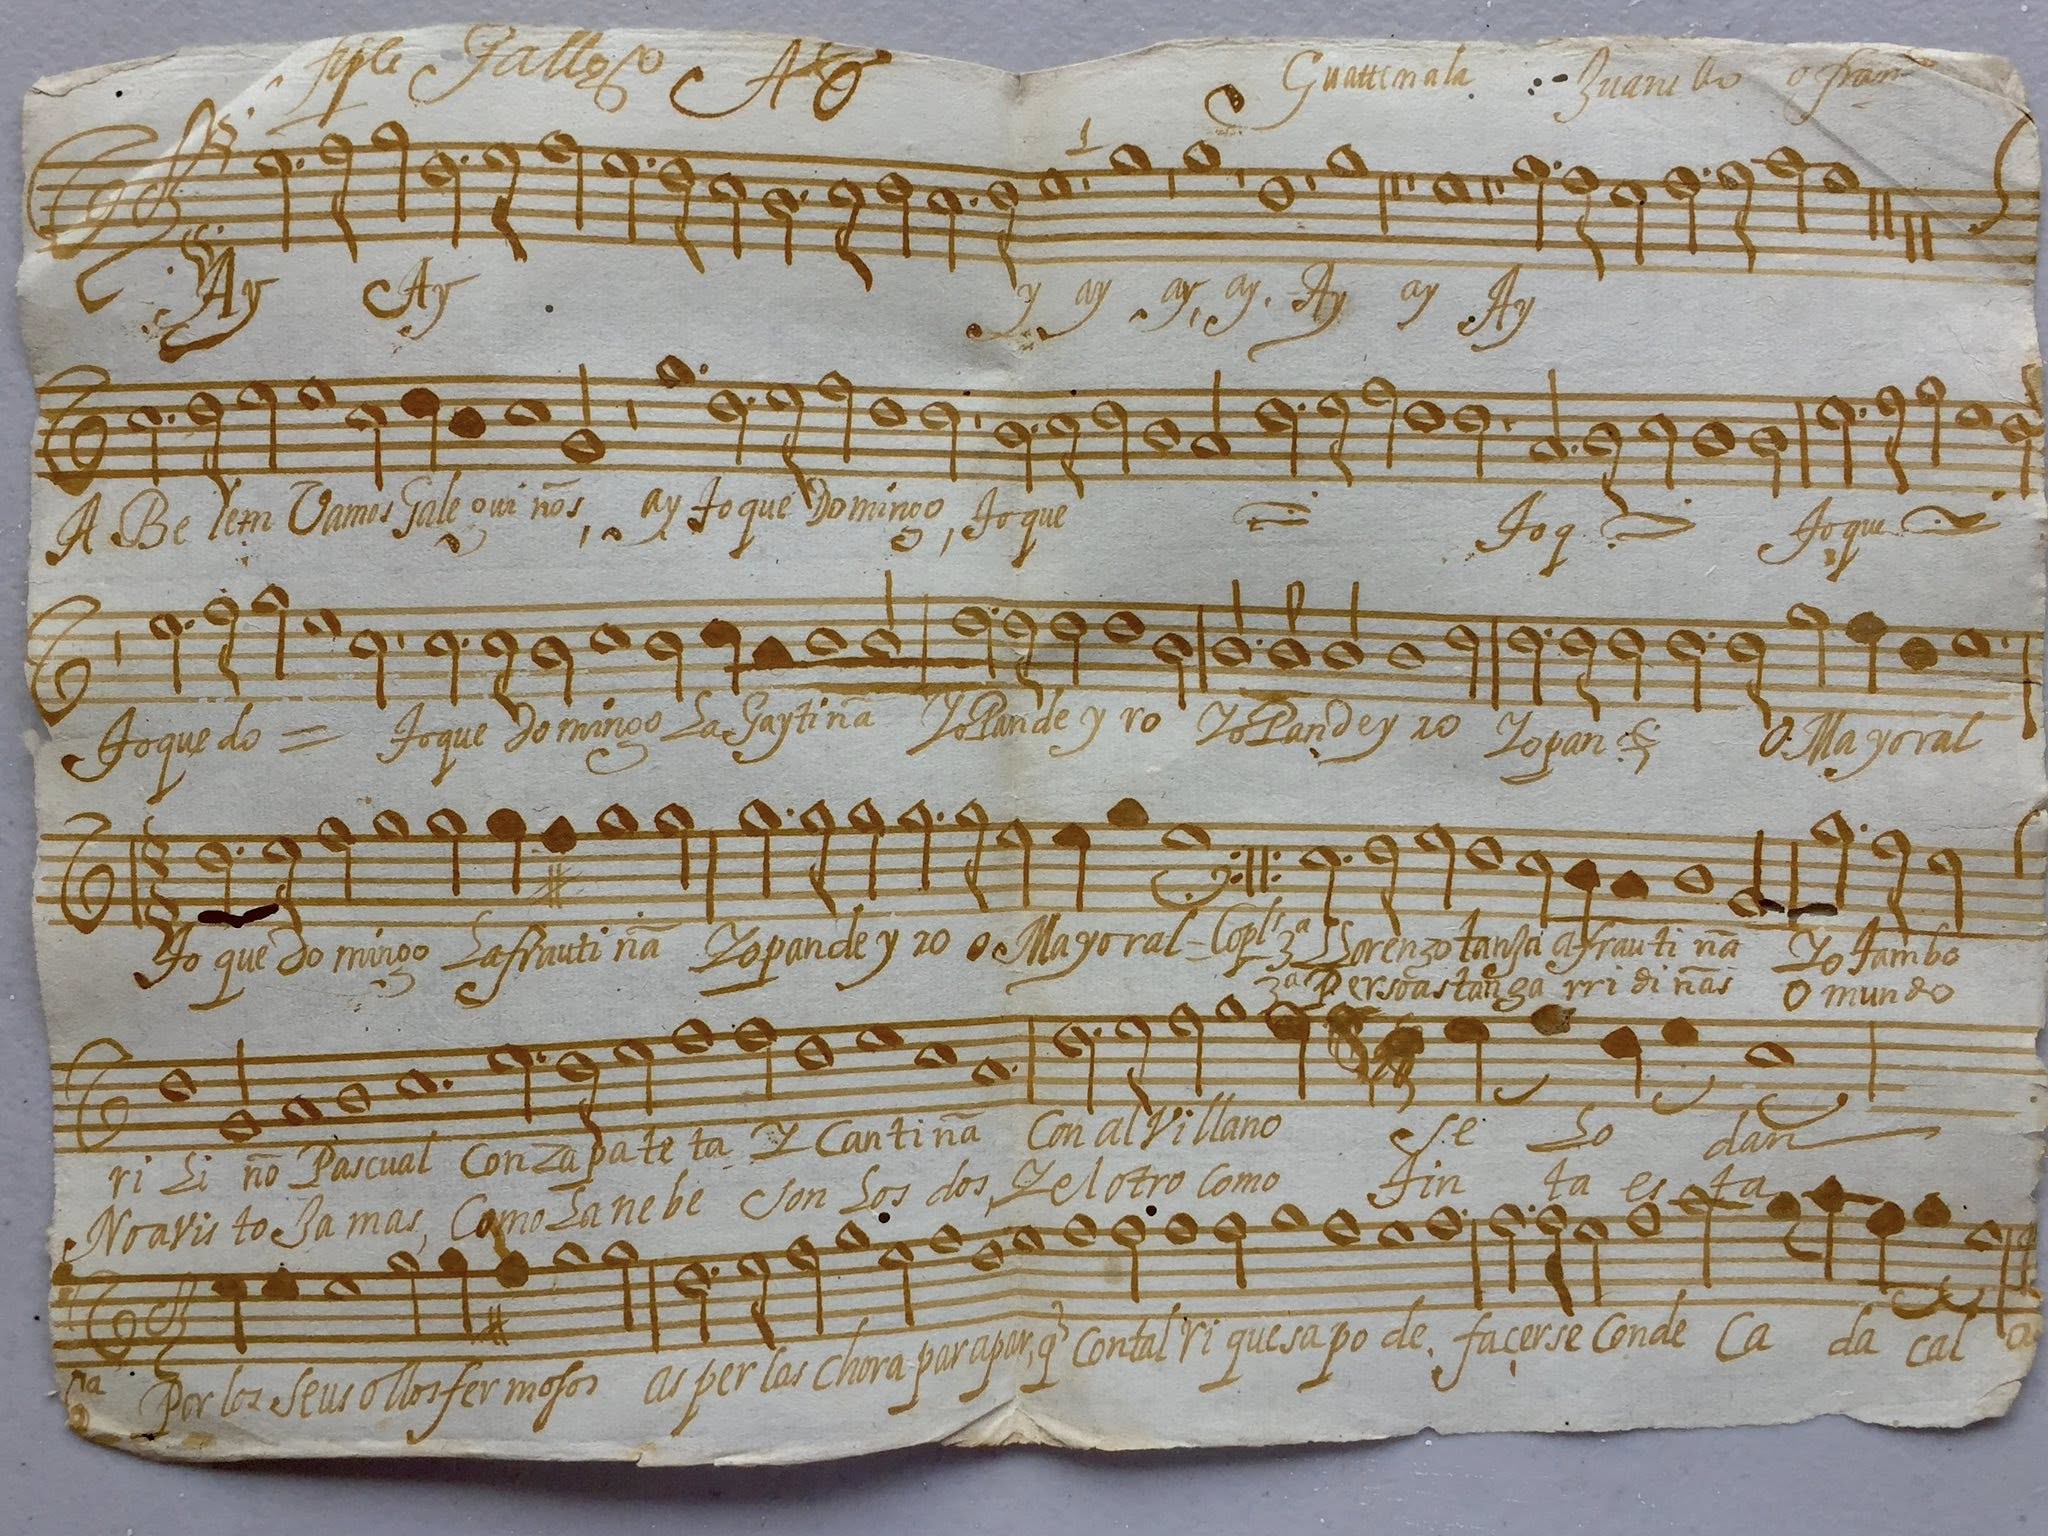 tiple Gallego A 4 Guattemala
Ay Ay y ay ay, ay. Ay ay Ay
A Be lem Vamos Gale gui nõs, ay Toque Domingo, Toque = Toq Toque
Toque do = Toque Domingo La Gaytinã Yo Pandeyro Yo Pandey ro Yo pan O Mayoral
To que Domingo La frautinã Yo pandey ro o Mayoral - Copl.ˢ Llorenzo tanja a frauti nã Yo Tambo
3ª Persoãs tan ga rri di nãs O mundo
ri Li nõ Pascual Con zapateta Y Cantinã Con al Villano Se Lo dan
No a vis to Ja mas, Como La nebe son Los dos, Y el otro Como Tin ta es ta
Por los seus ollos fermosos as perlas chora par a par, q̃ Con tal ri quesa po de façerse Conde Ca da cal